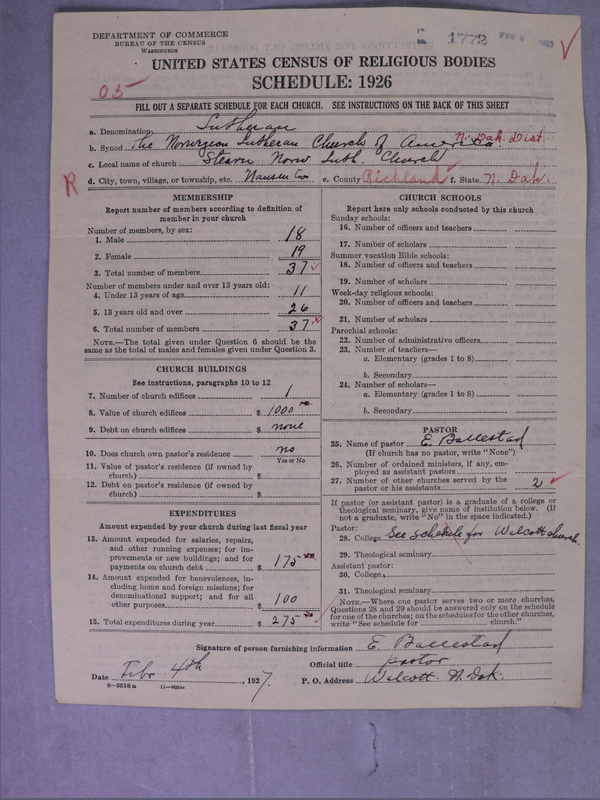 DEPARTMENT OF COMMERCE
BUREAU OF THE CENSUS
WASHINGTON
1772
UNITED STATES CENSUS OF RELIGIOUS BODIES
SCHEDULE: 1926
05
FILL OUT A SEPARATE SCHEDULE FOR EACH CHURCH. SEE INSTRUCTIONS ON THE BACK OF THIS SHEET
a. Denomination Lutheran
b. Synod The Norwegian Lutheran Church of America N. Dak. Dist.
c. Local name of church Norw Luth. Church
R
d. City, town, village, or township, etc. Nansen e. County Richland f. State N. Dak.
MEMBERSHIP
Report number of members according to definition of
member in your church
Number of members, by sex:
1. Male 18
2. Female 19
3. Total number of members 37
Number of members under and over 13 years old:
4. Under 13 years of age 11
5. 13 years old and over 26
6. Total number of members 37
NOTE.—The total given under Question 6 should be the
same as the total of males and females given under Question 3.
CHURCH BUILDINGS
See instructions, paragraphs 10 to 12
7. Number of church edifices 1
8. Value of church edifices $ 1000
9. Debt on church edifices $ none
10. Does church own pastor's residence? no
Yes or No
11. Value of pastor's residence (if owned by
church) $
12. Debt on pastor's residence (if owned by
church) $
EXPENDITURES
Amount expended by your church during last fiscal year
13. Amount expended for salaries, repairs,
and other running expenses; for im-
provements or new buildings; and for
payments on church debt $ 175
14. Amount expended for benevolences, in-
cluding home and foreign missions; for
denominational support; and for all
other purposes. $ 100
15. Total expenditures during year $ 275
CHURCH SCHOOLS
Report here only schools conducted by this church
Sunday schools:
16. Number of officers and teachers
17. Number of scholars
Summer vacation Bible schools:
18. Number of officers and teachers
19. Number of scholars
Week-day religious schools:
20. Number of officers and teachers
21. Number of scholars
Parochial schools:
22. Number of administrative officers
23. Number of teachers—
a. Elementary (grades 1 to 8)
b. Secondary
24. Number of scholars—
a. Elementary (grades 1 to 8)
b. Secondary
PASTOR
25. Name of pastor E. Ballestad
(If church has no pastor, write "None")
26. Number of ordained ministers, if any, em-
ployed as assistant pastors
27. Number of other churches served by the
pastor or his assistants 2
If pastor (or assistant pastor) is a graduate of a college or
theological seminary, give name of institution below. (If
not a graduate, write "No" in the space indicated.)
Pastor:
28. College See schedule for Walcott church
29. Theological seminary
Assistant pastor:
30. College
31. Theological seminary
NOTE.—Where one pastor serves two or more churches,
Questions 28 and 29 should be answered only on the schedule
for one of the churches; on the schedules for the other churches,
write "See schedule for church."
Signature of person furnishing information E. Ballestad
Official title pastor
Date Febr 4th, 1927. P. O. Address Walcott. N. Dak.
8-5318a 11-9054a